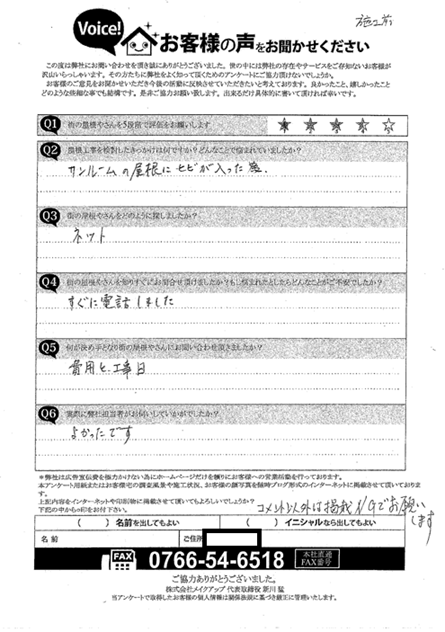 施工前
Voice!
お客様の声をお聞かせください
この度は弊社にお問い合わせを頂き誠にありがとうございました。世の中には弊社の存在やサービスをご存知ないお客様が
沢山いらっしゃいます。その方たちに弊社をよく知って頂くためのアンケートにご協力頂けないでしょうか。
お客様のご意見をお聞かせいただき今後の活動に反映させていただきたいと考えております。良かったこと、嬉しかったこと
どのような些細な事でも結構です。是非ご協力お願い致します。出来るだけ具体的に書いて頂ければ幸いです。
Q1 街の屋根やさんを5段階で評価をお願いします ★ ★ ★ ★ ☆
Q2 屋根工事を検討したきっかけは何ですか？どんなことで悩まれていましたか？
サンルームの屋根にヒビが入った為.
Q3 街の屋根やさんをどのように探しましたか？
ネット
Q4 街の屋根やさんを知りすぐにお問合せ頂けましたか？もし悩まれたとしたらどんなことがご不安でしたか？
すぐに電話しました
Q5 何が決め手となり街の屋根やさんにお問い合わせ頂きましたか？
費用と、工事日
Q6 実際に弊社担当者がお伺いしていかがでしたか？
よかったです
＊弊社は広告宣伝費を極力かけない為にホームページだけを頼りにお客様への営業活動を行っております。
本アンケート用紙またはお客様宅の調査風景や施工状況、お客様の顔写真を随時ブログ形式のインターネットに掲載させて頂いております。
上記内容をインターネットや印刷物に掲載させて頂いてもよろしいでしょうか？
下記の中から○印をお付下さい。
コメント以外は掲載NGでお願いします
( ) 名前を出してもよい ( ) イニシャルなら出してもよい
名前 ご住所
FAX 0766-54-6518 本社直通 FAX番号
ご協力ありがとうございました。
株式会社メイクアップ 代表取締役 新川 猛
当アンケートで取得したお客様の個人情報は関係法規に基づき厳正に管理いたします。